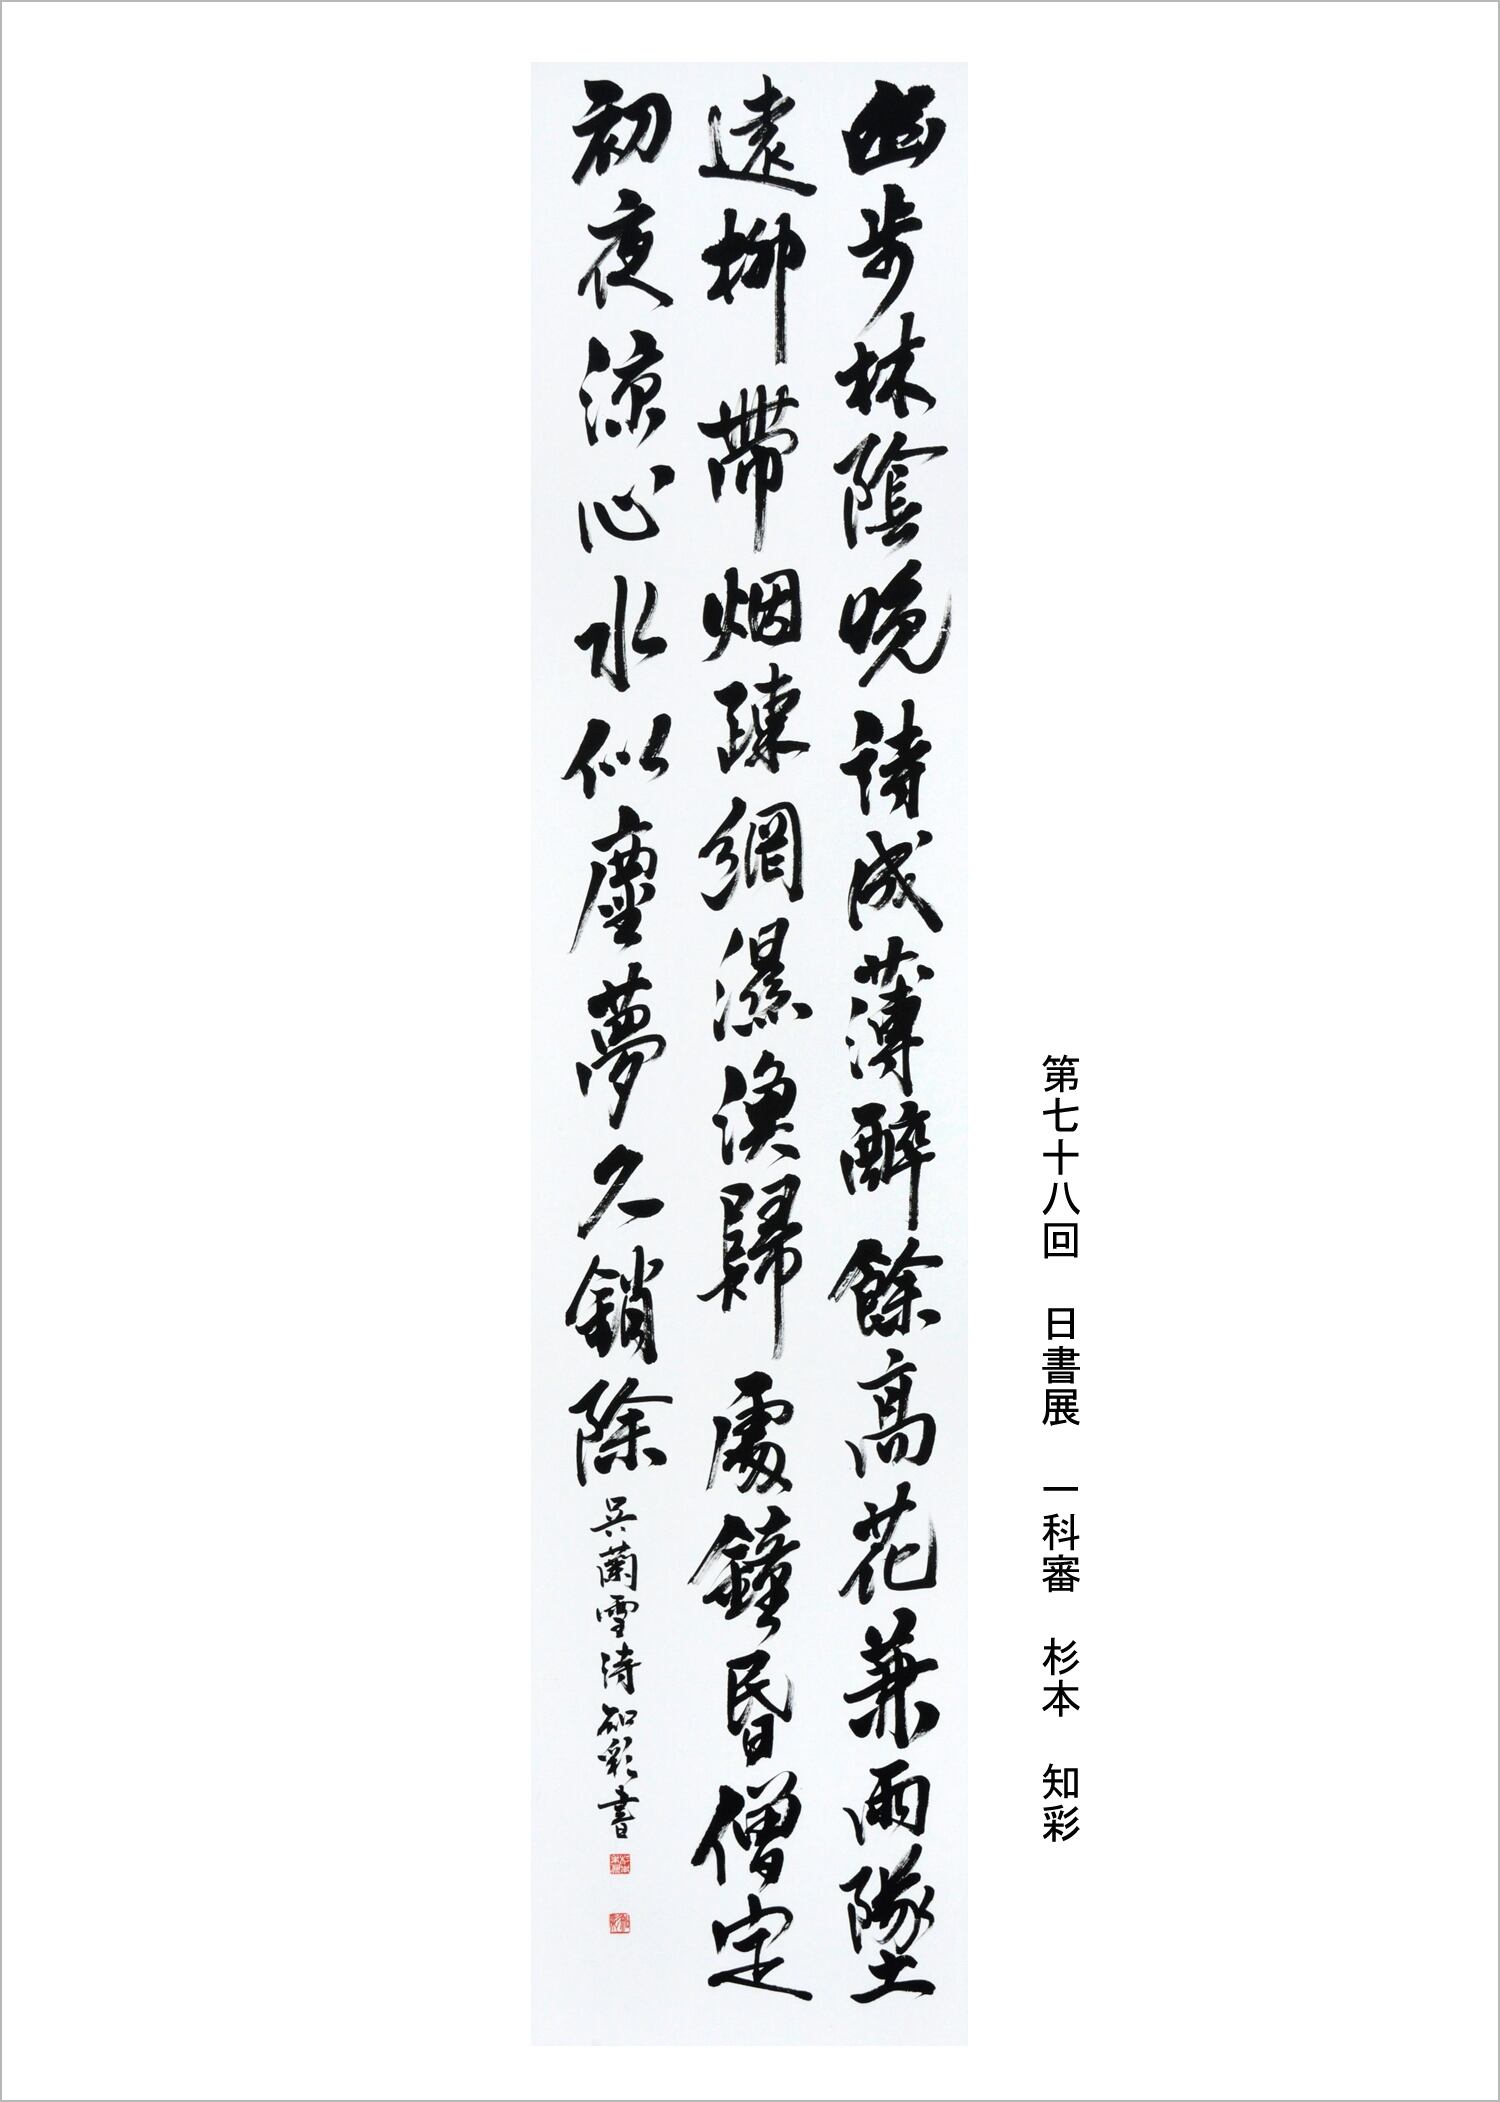 第七十八回　日書展　一科審　杉本　知彩
幽步林陰晚詩成薄醉餘高花兼雨墜
遠柳帶烟疎網濕漁歸處鐘昏僧定
初夜涼心水似塵夢久銷除
呉蘭雪詩知彩書